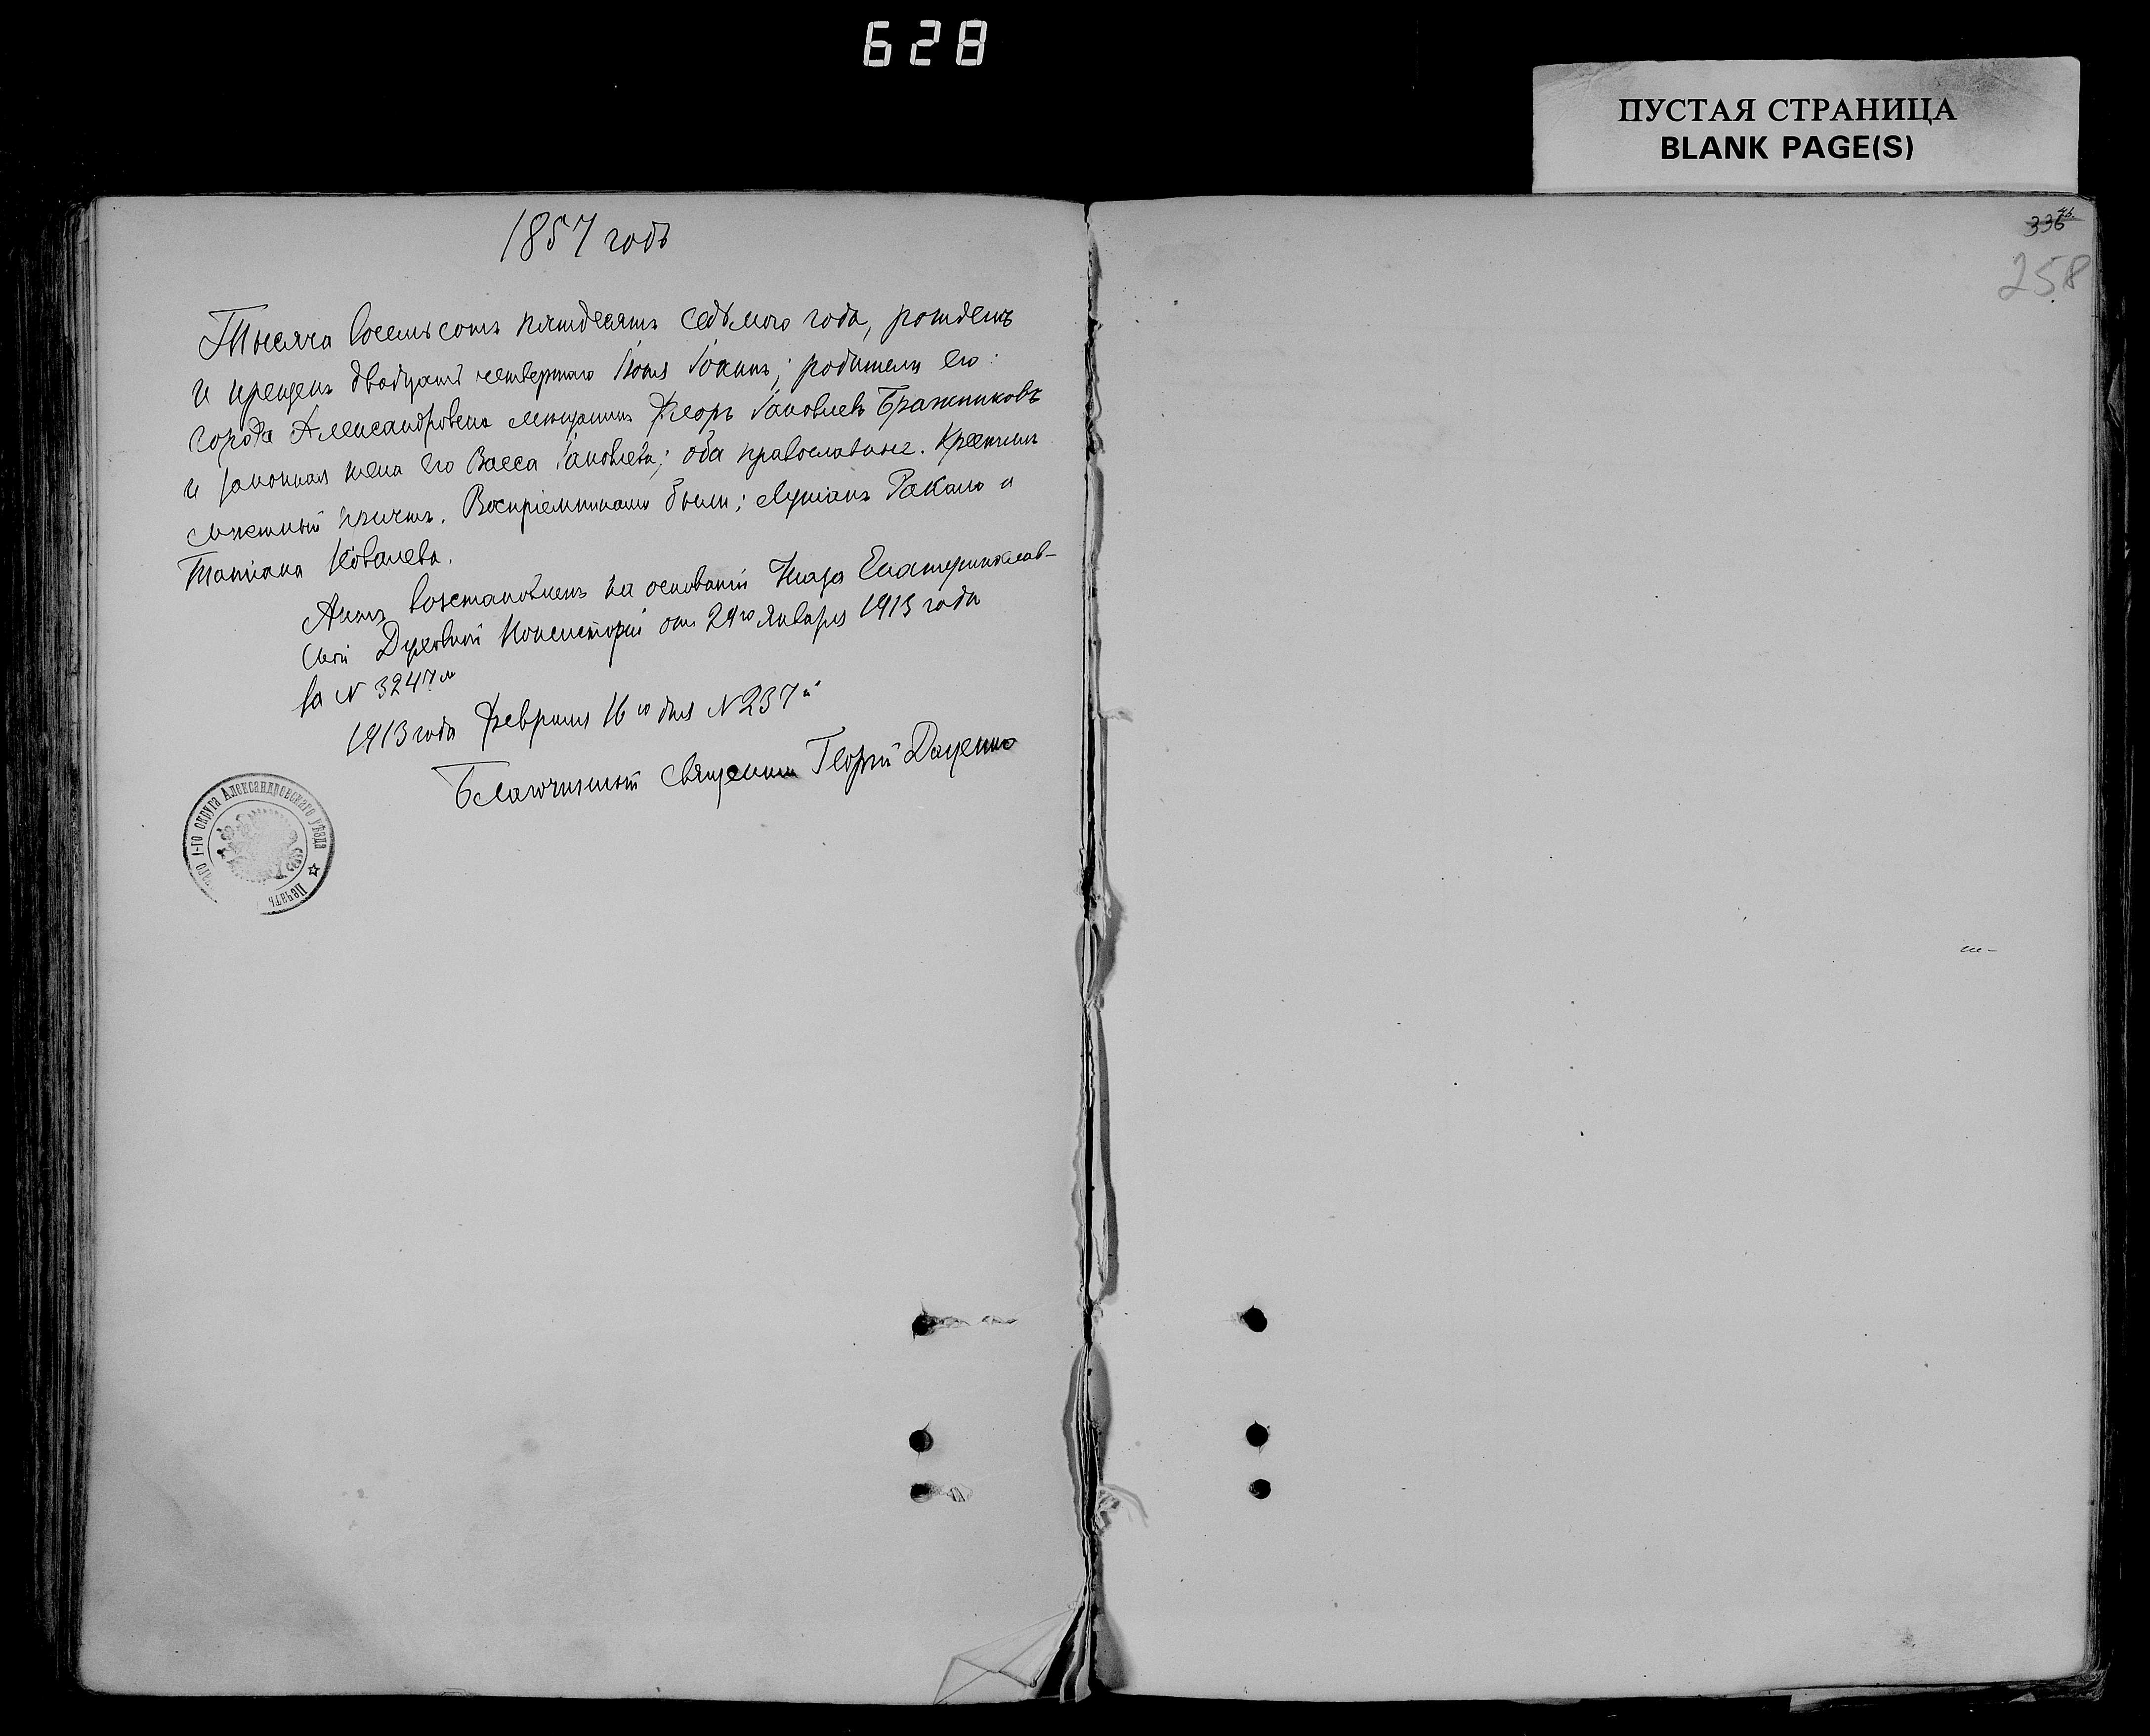 628
ПУСТАЯ СТРАНИЦА
BLANK PAGE(S)
1857 годъ
Тысяча восемьсотъ пятдесятъ седьмого года, рожденъ
и крещенъ двадцать четвертаго Іоаннъ; родители его:
города Александровска мещанинъ Ѳеоръ Іаковлевъ Бражниковъ
и законная жена его Васса Іаковлева; оба православные. Крестилъ
мѣстный причтъ. Воспріемниками были: Лукіанъ Ракало и
Татіана Ковалева.
Актъ возстановленъ на основаніи Указа Екатеринослав-
ской Духовной Консисторіи отъ 29го Января 1913 года
за № 3247м
1913 года Февраля 16го дня № 237й
Благочинный Священникъ Георгій Даценко
Печать наго 1-го округа Александровскаго уѣзда
336
258